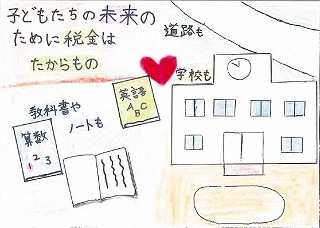 子どもたちの未来の
ために税金は
たからもの
道路も
学校も
教科書や
ノートも
英語
A
B C
算数
1 2 3